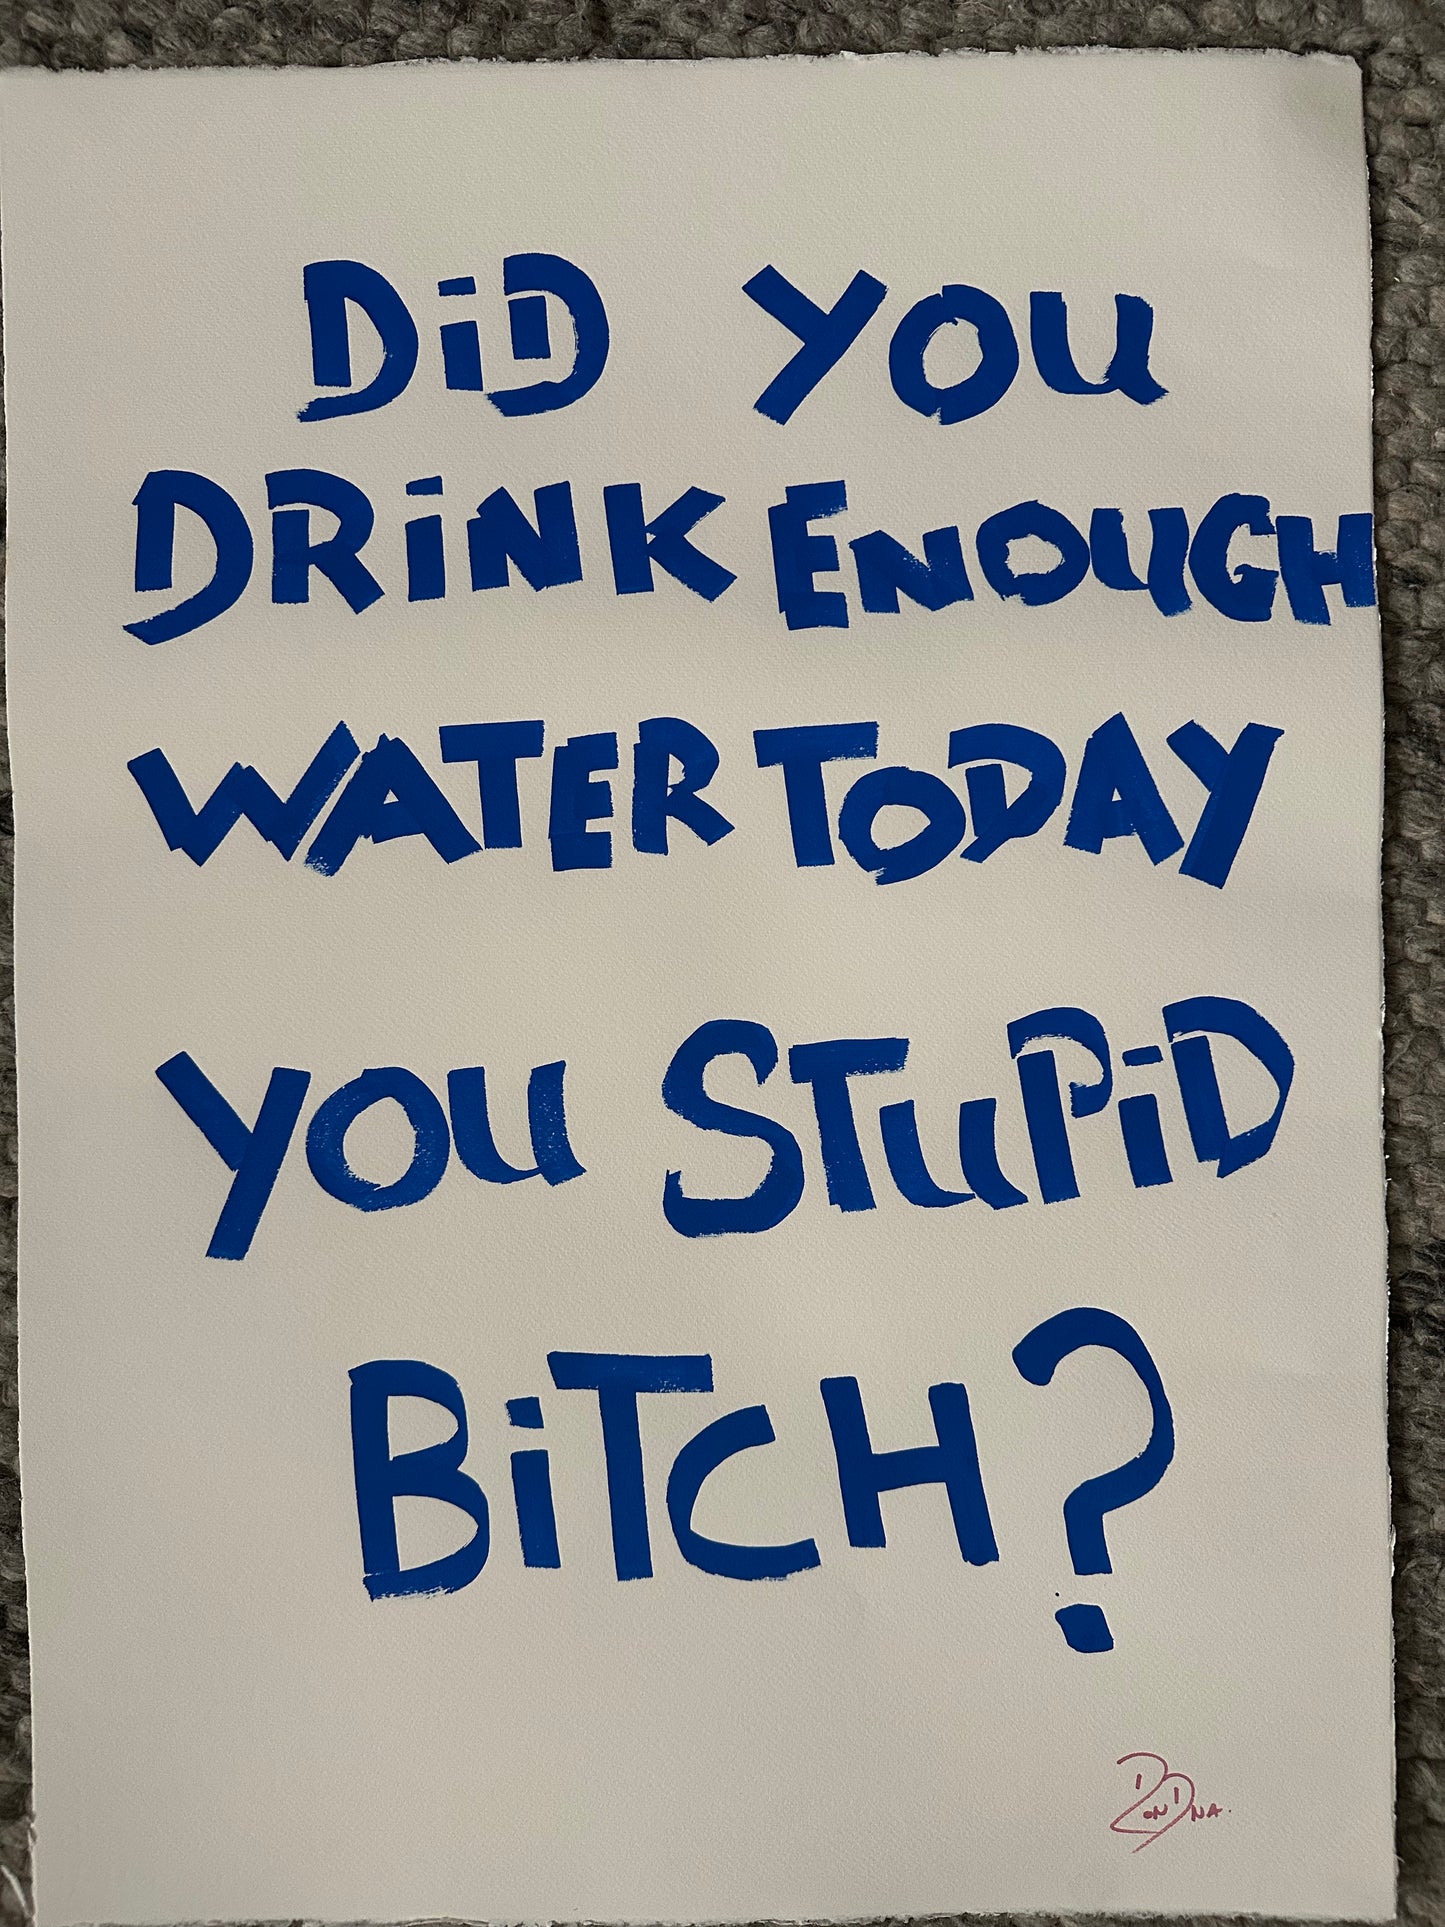 DiD YOU
DRiNK ENOUGH
WATER TODAY
YOU STUPiD
BiTCH?
DON DNA.